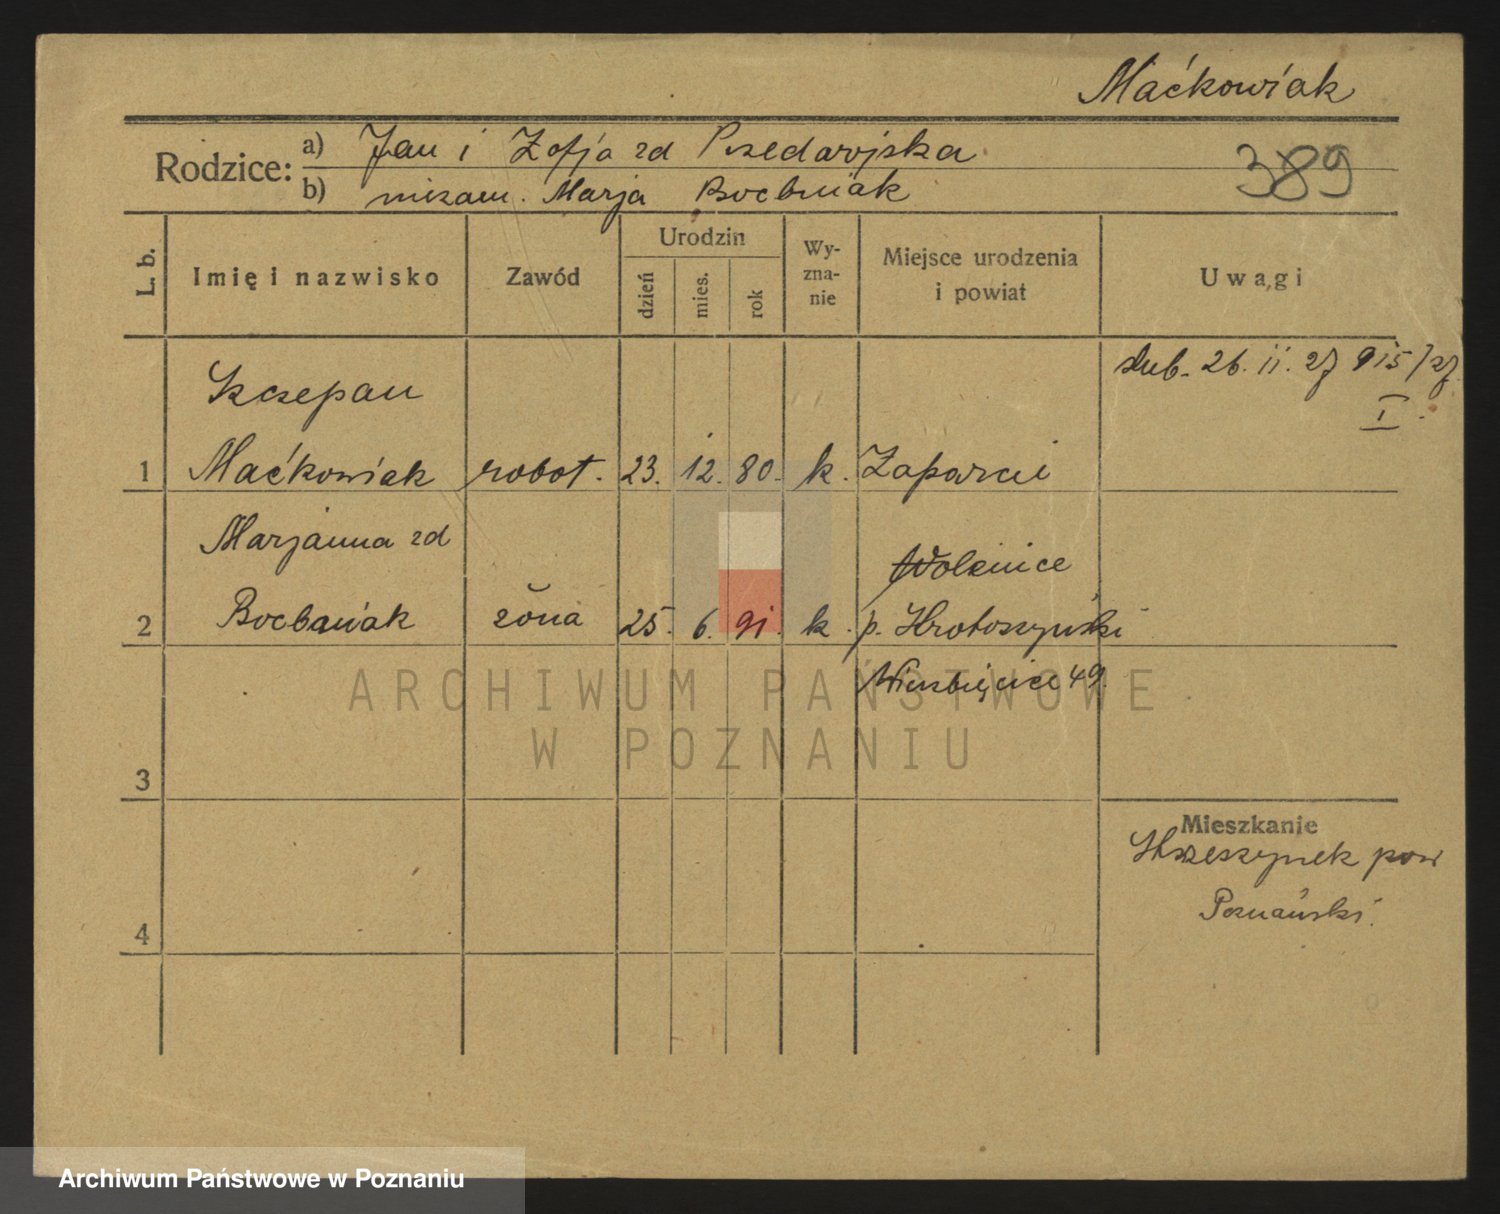 Maćkowiak
Rodzice: a) Jan i Zofja zd
389
b) niezam. Marja Bocbniak
L. b.
Imię i nazwisko
Zawód
Urodzin
dzień
mies.
rok
Wy-
zna-
nie
Miejsce urodzenia
i powiat
Uwagi
ślub. 26. 11. 27 915/27
I.
Szczepan
1 Maćkowiak robot. 23. 12. 80. k.
Marjanna zd
2 żona 25. 6. 91. k.
p. Krotoszyński
Wierzbięcice 49.
3
Mieszkanie
Strzeszynek pow
Poznański.
4
ARCHIWUM PAŃSTWOWE
W POZNANIU
Archiwum Państwowe w Poznaniu